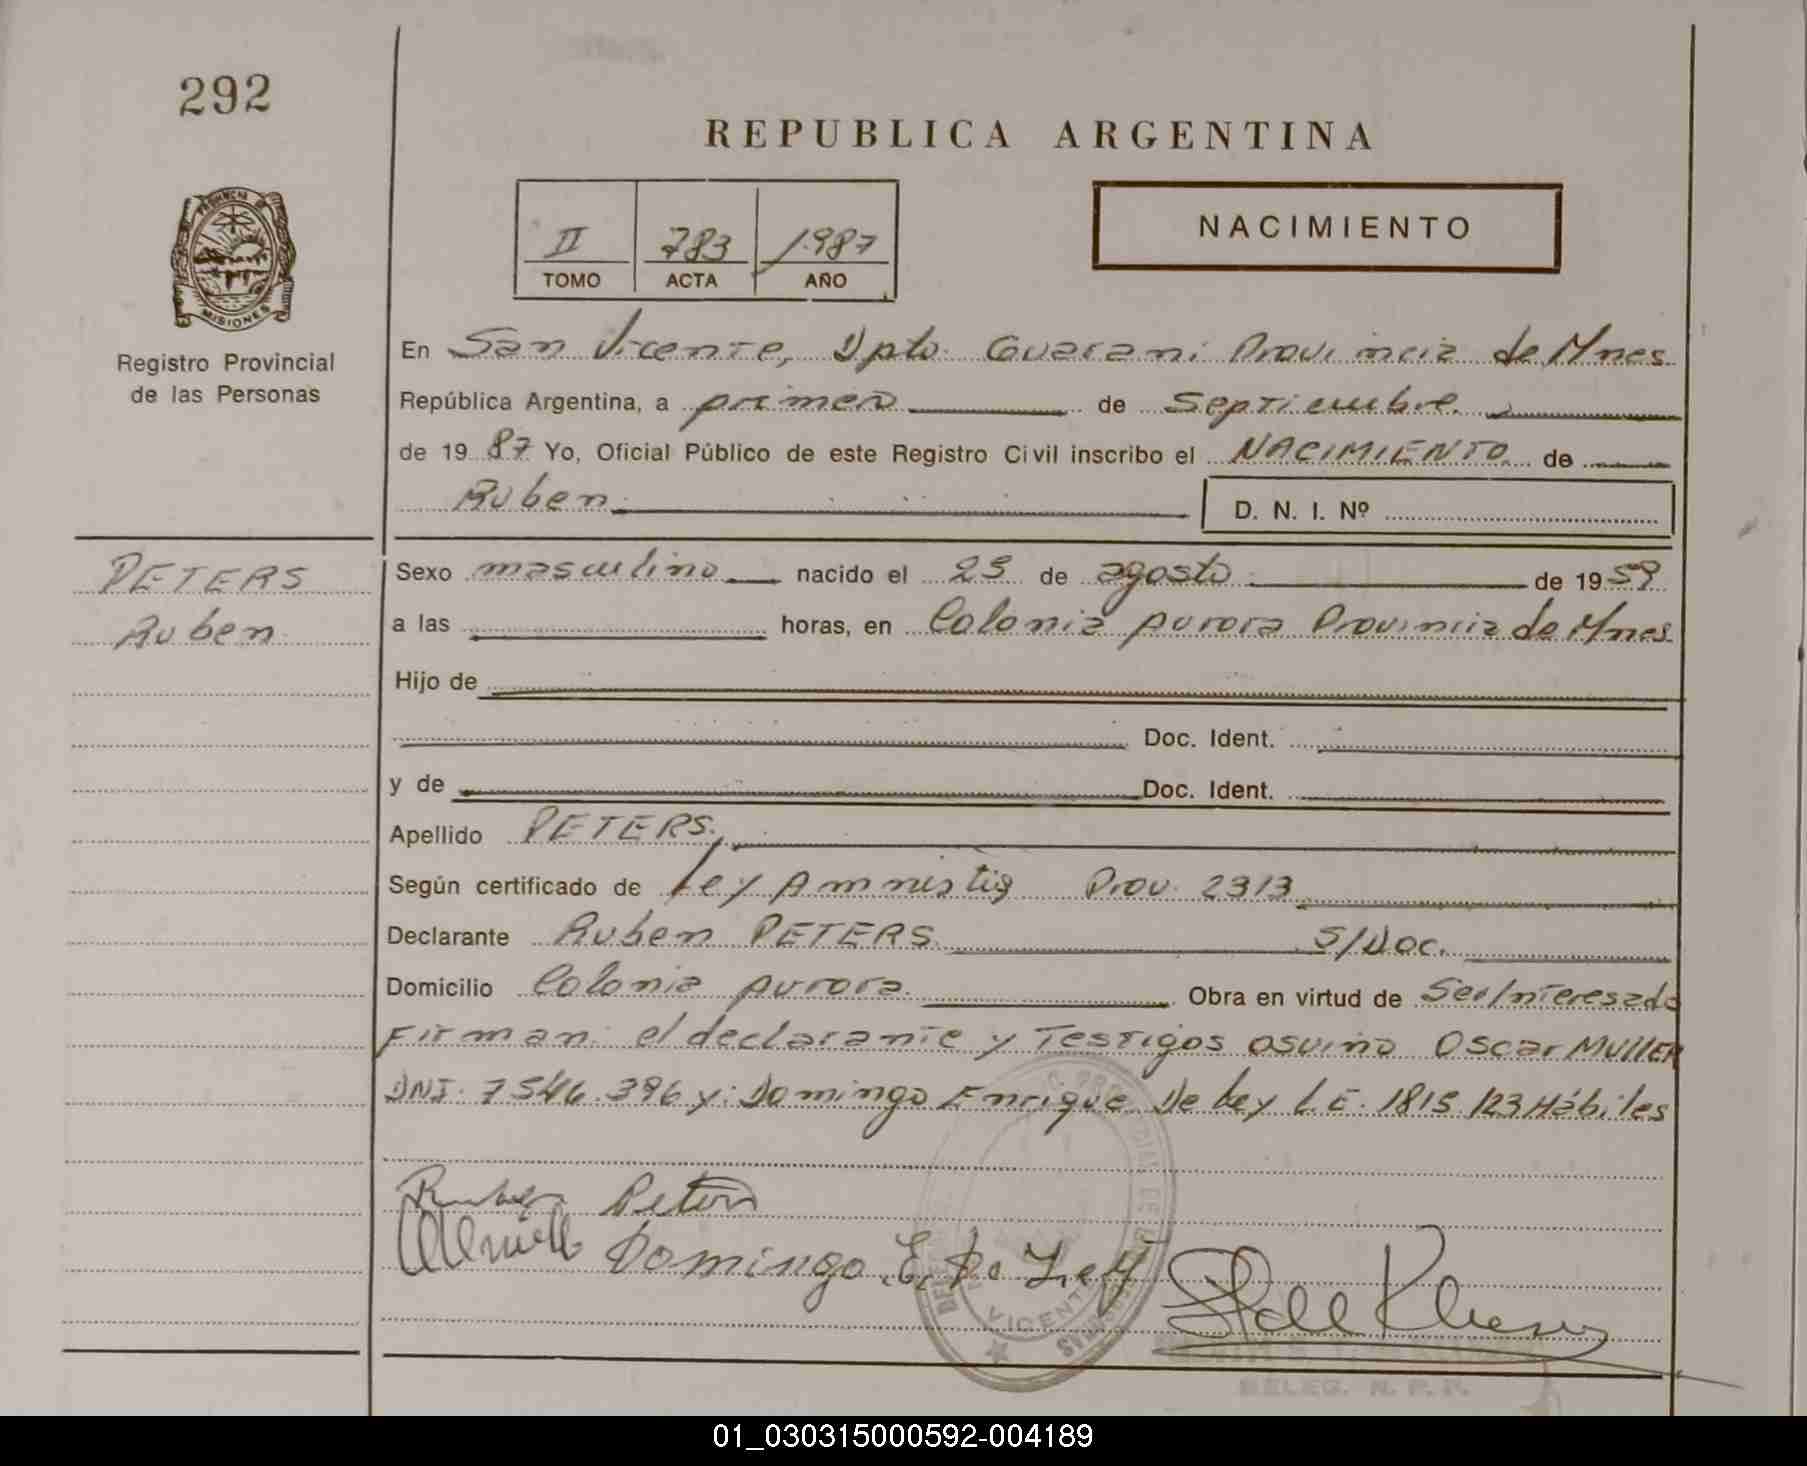 292
REPUBLICA ARGENTINA
II 783 1.987
TOMO ACTA AÑO
NACIMIENTO
PROVINCIA DE
MISIONES
Registro Provincial
de las Personas
En San Vicente, Dpto. Guarani Provincia de Mnes
República Argentina, a primero de Septiembre
de 1987 Yo, Oficial Público de este Registro Civil inscribo el NACIMIENTO de
Ruben
D. N. I. Nº
PETERS
Ruben
Sexo masculino nacido el 23 de agosto de 1959
a las horas, en Colonia Aurora Provincia de Mnes
Hijo de
Doc. Ident.
y de Doc. Ident.
Apellido PETERS.
Según certificado de Ley Amnistia Prov. 2313
Declarante Ruben PETERS S/Doc.
Domicilio Colonia Aurora. Obra en virtud de Ser Interesado
Firman: el declarante y Testigos Osvino Oscar MULLER
DNI. 7546.396 y: Domingo Enrique De Ley L.E. 1815123 Hábiles
Ruben Peters
Domingo E. De Ley
VICENTE
MISIONES
DELEG. R. P. P.
01_030315000592-004189